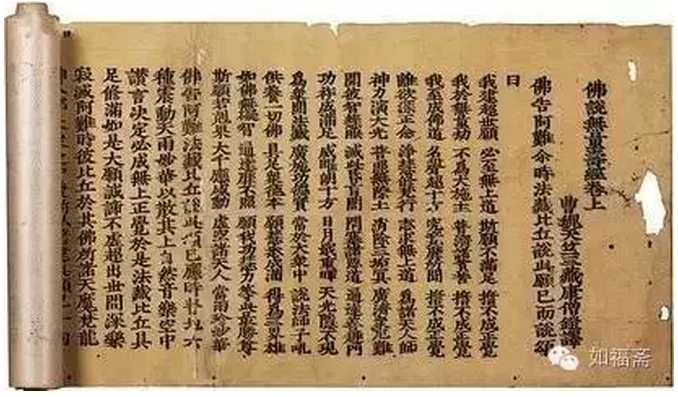 佛說無量壽經卷上
曹魏天竺三藏康僧鎧譯
佛告阿難尒時法藏比丘說此願已而說頌
曰
我建超世願 必至無上道 斯願不滿足 誓不成正覺
我於無量劫 不為大施主 普濟諸貧苦 誓不成正覺
我至成佛道 名聲超十方 究竟靡所聞 誓不成正覺
離欲深正念 淨慧修梵行 志求無上道 為諸天人師
神力演大光 普照無際土 消除三垢冥 廣濟衆厄難
開彼智慧眼 滅此昏盲闇 閉塞諸惡道 通達善趣門
功祚成滿足 威曜朗十方 日月戢重暉 天光隱不現
為衆開法藏 廣施功德寶 常於大衆中 說法師子吼
供養一切佛 具足衆德本 願慧悉成滿 得為三界雄
如佛無礙智 通達靡不照 願我功德力 等此最勝尊
斯願若剋果 大千應感動 虛空諸天人 當雨珍妙華
佛告阿難法藏比丘說此頌已應時普地六
種震動天雨妙華以散其上自然音樂空中
讚言決定必成無上正覺於是法藏比丘具
足修滿如是大願誠諦不虛超出世間深樂
寂滅阿難時彼比丘於其佛所諸天魔梵龍
如福斋